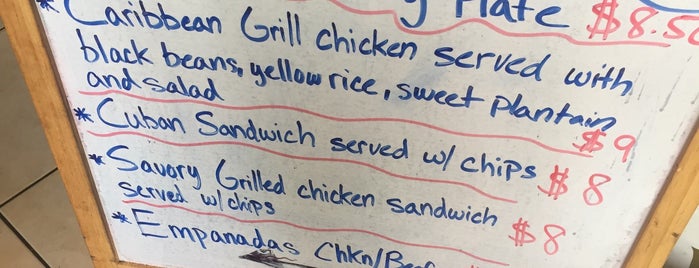 Plate $8.50
* Caribbean Grill chicken served with
black beans, yellow rice, sweet plantain
and salad $9
* Cuban Sandwich served w/ chips $8
* Savory Grilled chicken sandwich
served w/chips $8
* Empanadas Chkn/Beef